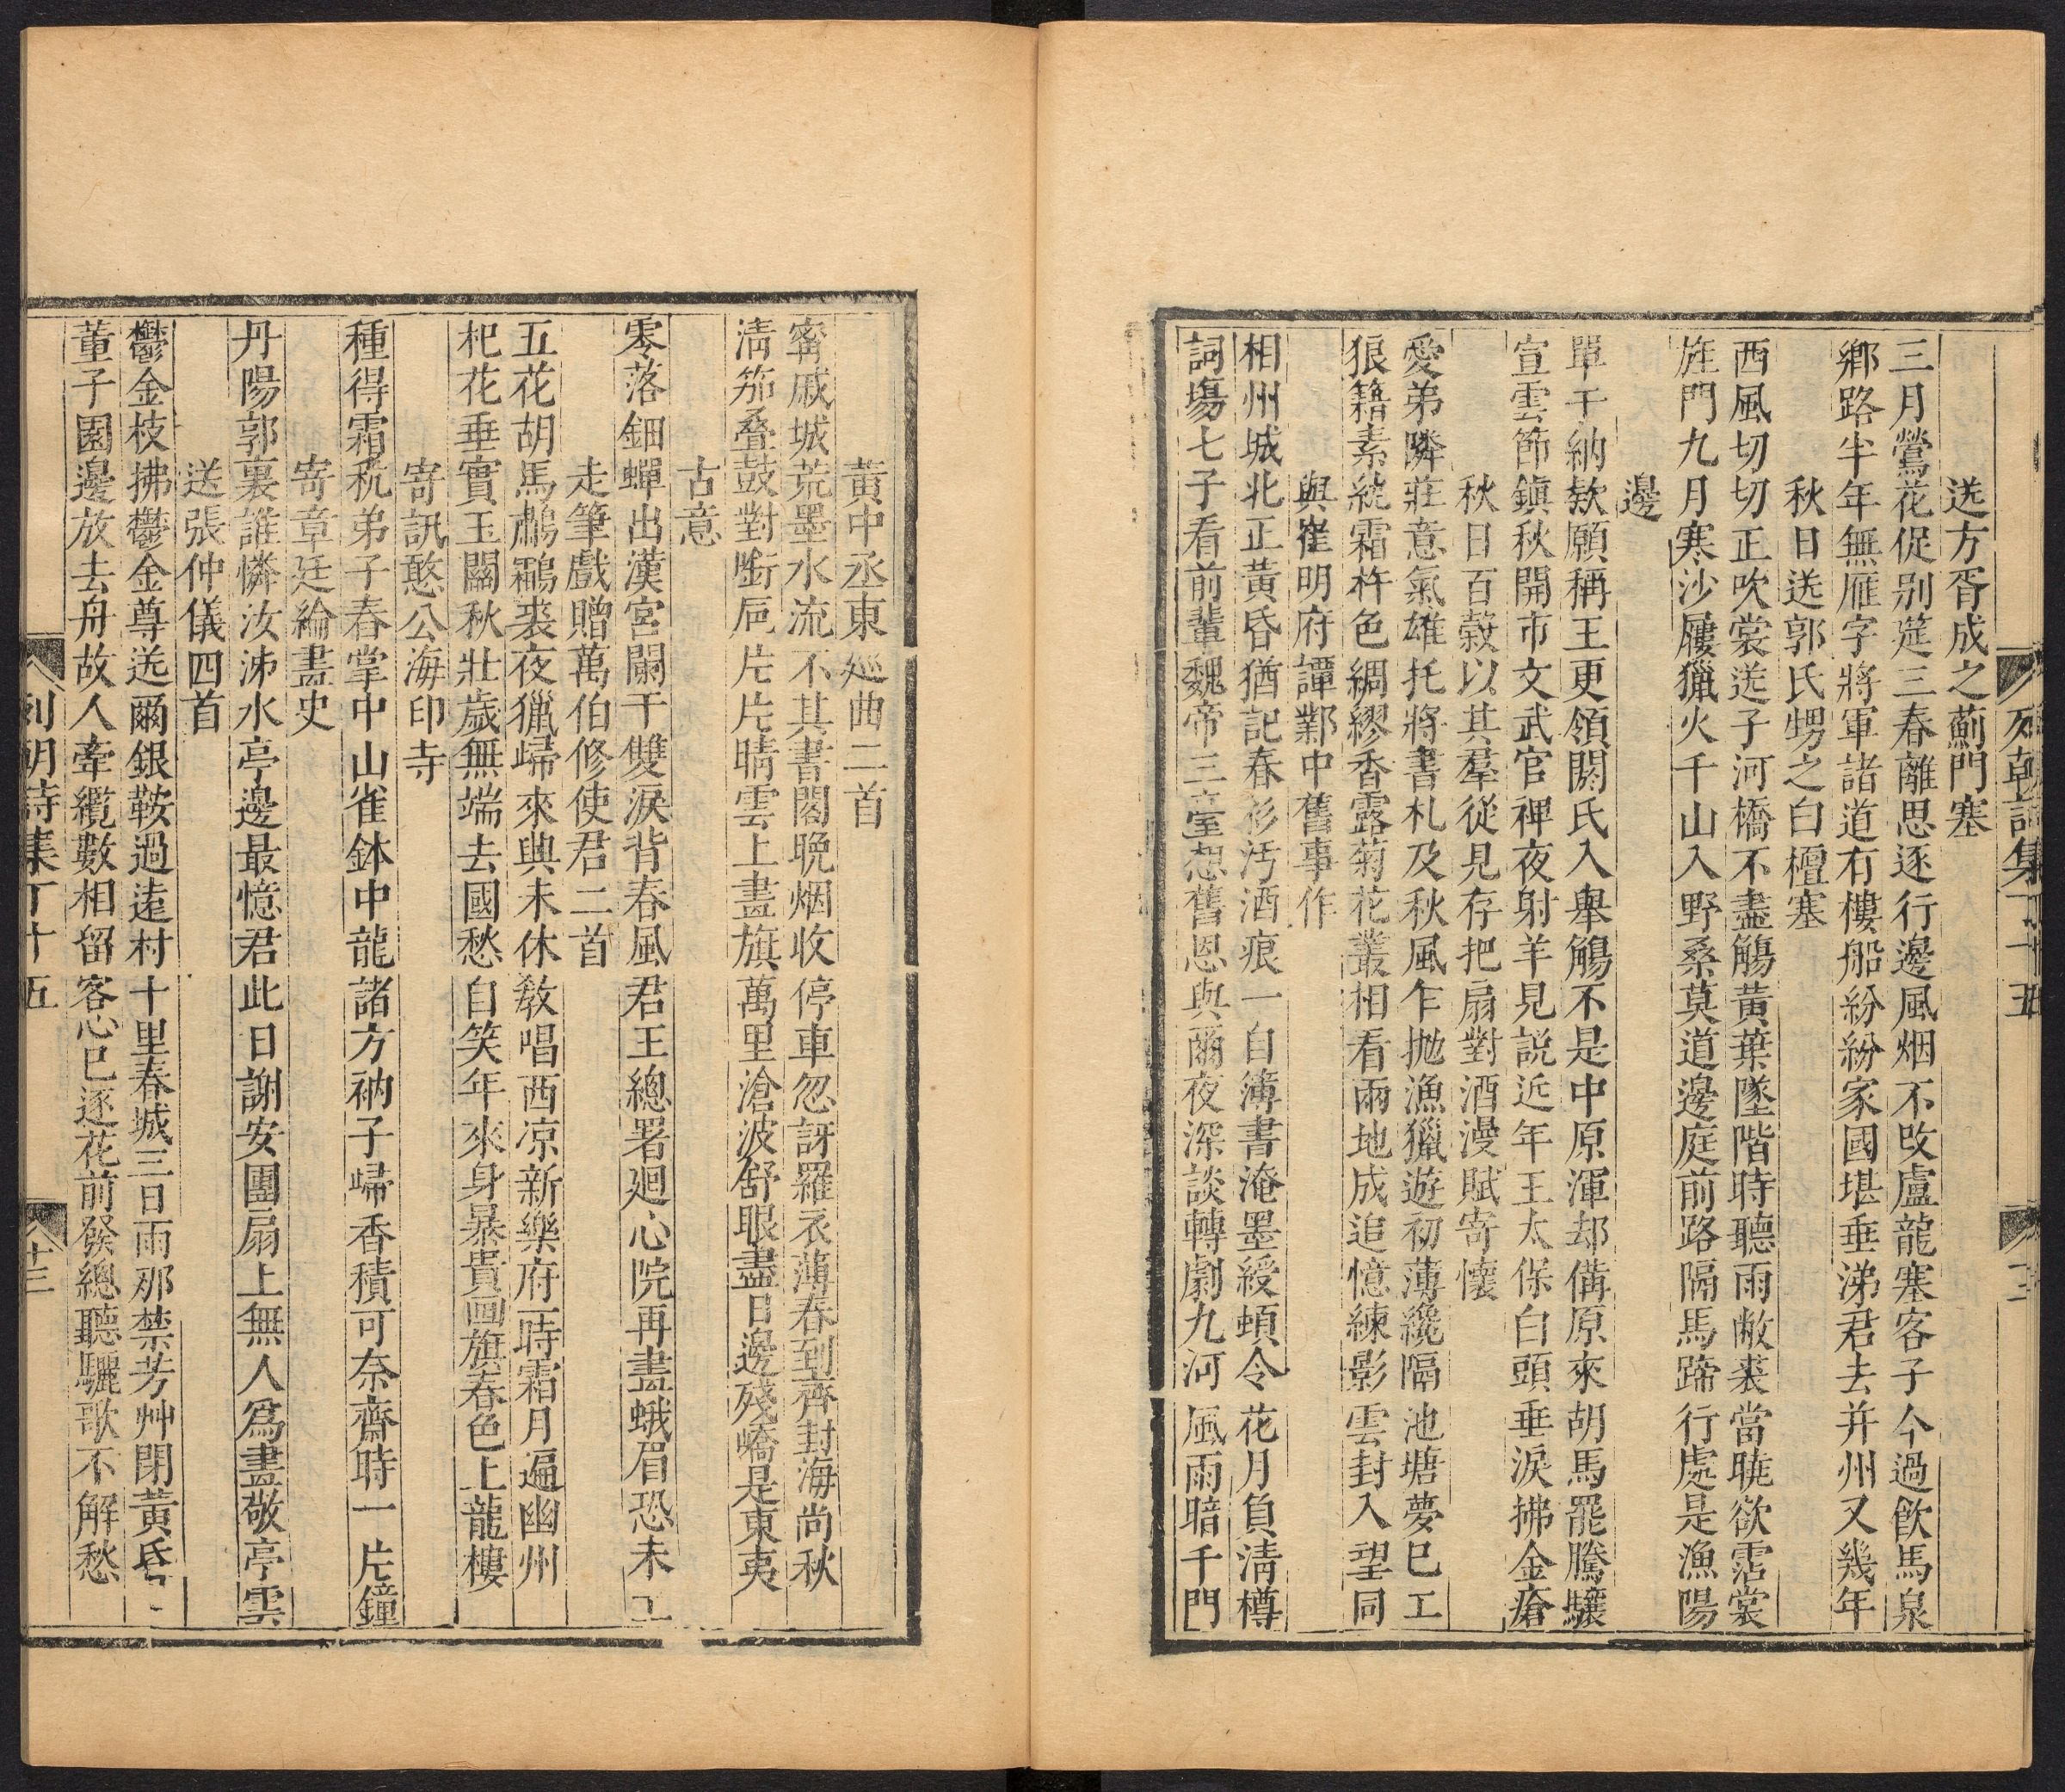 列朝詩集丁十五
送方胥成之薊門塞
三月鶯花促别筵三春離思逐行邊風烟不改盧龍塞客子今過飲馬泉
鄉路半年無雁字將軍諸道有樓船紛紛家國堪垂涕君去并州又幾年
秋日送郭氏甥之白檀塞
西風切切正吹裳送子河橋不盡觴黃葉墜階時聽雨敝裘當曉欲霑裳
旌門九月寒沙屨獵火千山入野桑莫道邊庭前路隔馬蹄行處是漁陽
邊
單于納欵願稱王更領閼氏入舉觴不是中原渾却備原來胡馬罷騰驤
宣雲節鎮秋開市文武官裨夜射羊見説近年王太保白頭垂淚拂金瘡
秋日百穀以其羣從見存把扇對酒漫賦寄懷
愛弟隣莊意氣雄托將書札及秋風乍拋漁獵遊初薄纔隔池塘夢巳工
狼籍素紈霜杵色綢繆香露菊花叢相看兩地成追憶練影雲封入望同
與崔明府譚鄴中舊事作
相州城北正黃昏猶記春衫汚酒痕一自簿書淹墨綬頓令花月負淸樽
詞塲七子看前輩魏帝三臺想舊恩與爾夜深談轉劇九河風雨暗千門
黃中丞東廵曲二首
甯戚城荒墨水流不其書閣晩烟收停車忽訝羅衣薄春到齊封海尚秋
淸笳叠鼓對衙巵片片晴雲上畫旗萬里滄波舒眼盡日邊殘嶠是東夷
古意
零落鈿蟬出漢宮闌干雙淚背春風君王總署廻心院再畫蛾眉恐未工
走筆戲贈萬伯修使君二首
五花胡馬鷫鸘裘夜獵歸來與未休敎唱西凉新樂府一時霜月遍幽州
杷花垂實玉關秋壯歲無端去國愁自笑年來身暴貴畫旗春色上龍樓
寄訊憨公海印寺
種得霜秔弟子春掌中山雀鉢中龍諸方衲子歸香積可奈齋時一片鐘
寄章廷綸畫史
丹陽郭裏誰憐汝沸水亭邊最憶君此日謝安團扇上無人爲畫敬亭雲
送張仲儀四首
鬱金枝拂鬱金尊送爾銀鞍過遠村十里春城三日雨那禁芳艸閉黃昏
董子園邊放去舟故人牽纜數相留客心巳逐花前發總聽驪歌不解愁
列朝詩集丁十五
十三